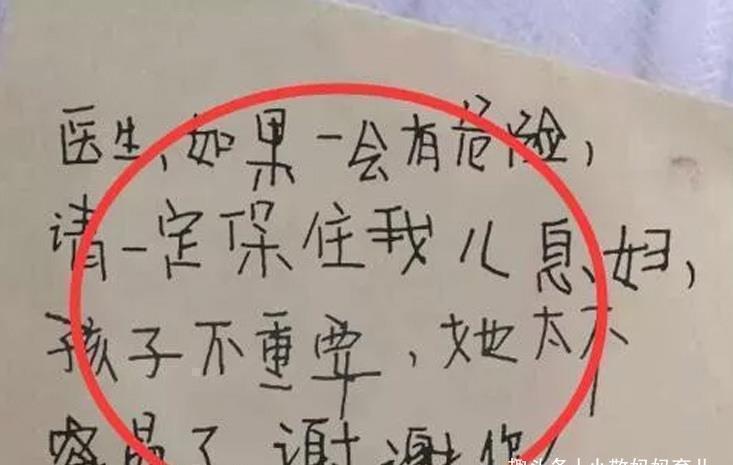 医生,如果一会有危险,
请一定保住我儿息妇,
孩子不重要,她太不
容易了 谢谢你!